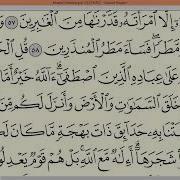 إِلَّا ٱمْرَأَتَهُۥ قَدَّرْنَٰهَا مِنَ ٱلْغَٰبِرِينَ ٥٧
مَّطَرًا فَسَآءَ مَطَرُ ٱلْمُنذَرِينَ ٥٨ قُلِ
عَلَىٰ عِبَادِهِ ٱلَّذِينَ ٱصْطَفَىٰٓ ءَآللَّهُ خَيْرٌ أَمَّا
خَلَقَ ٱلسَّمَٰوَٰتِ وَٱلْأَرْضَ وَأَنزَلَ لَكُم مِّنَ
حَدَآئِقَ ذَاتَ بَهْجَةٍ مَّا كَانَ
شَجَرَهَآ أَءِلَٰهٌ مَّعَ ٱللَّهِ بَلْ هُمْ قَوْمٌ